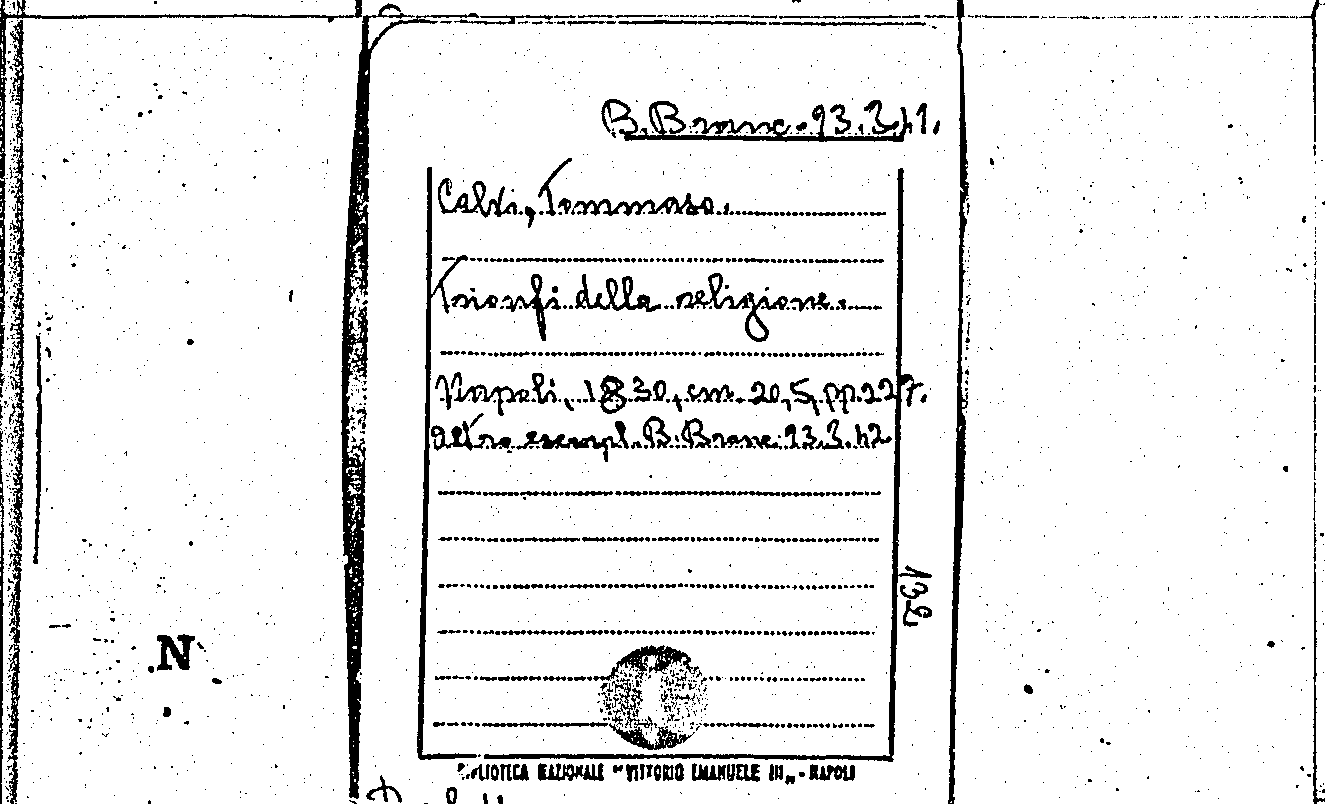 B. Branc. 93.3.41.
Calvi, Tommaso.
Trionfi della religione.
Napoli, 1830, cm. 20,5, pp. 227.
altro esempl. B. Branc. 93.3.42
132
N
BIBLIOTECA NAZIONALE "VITTORIO EMANUELE III„ - NAPOLI